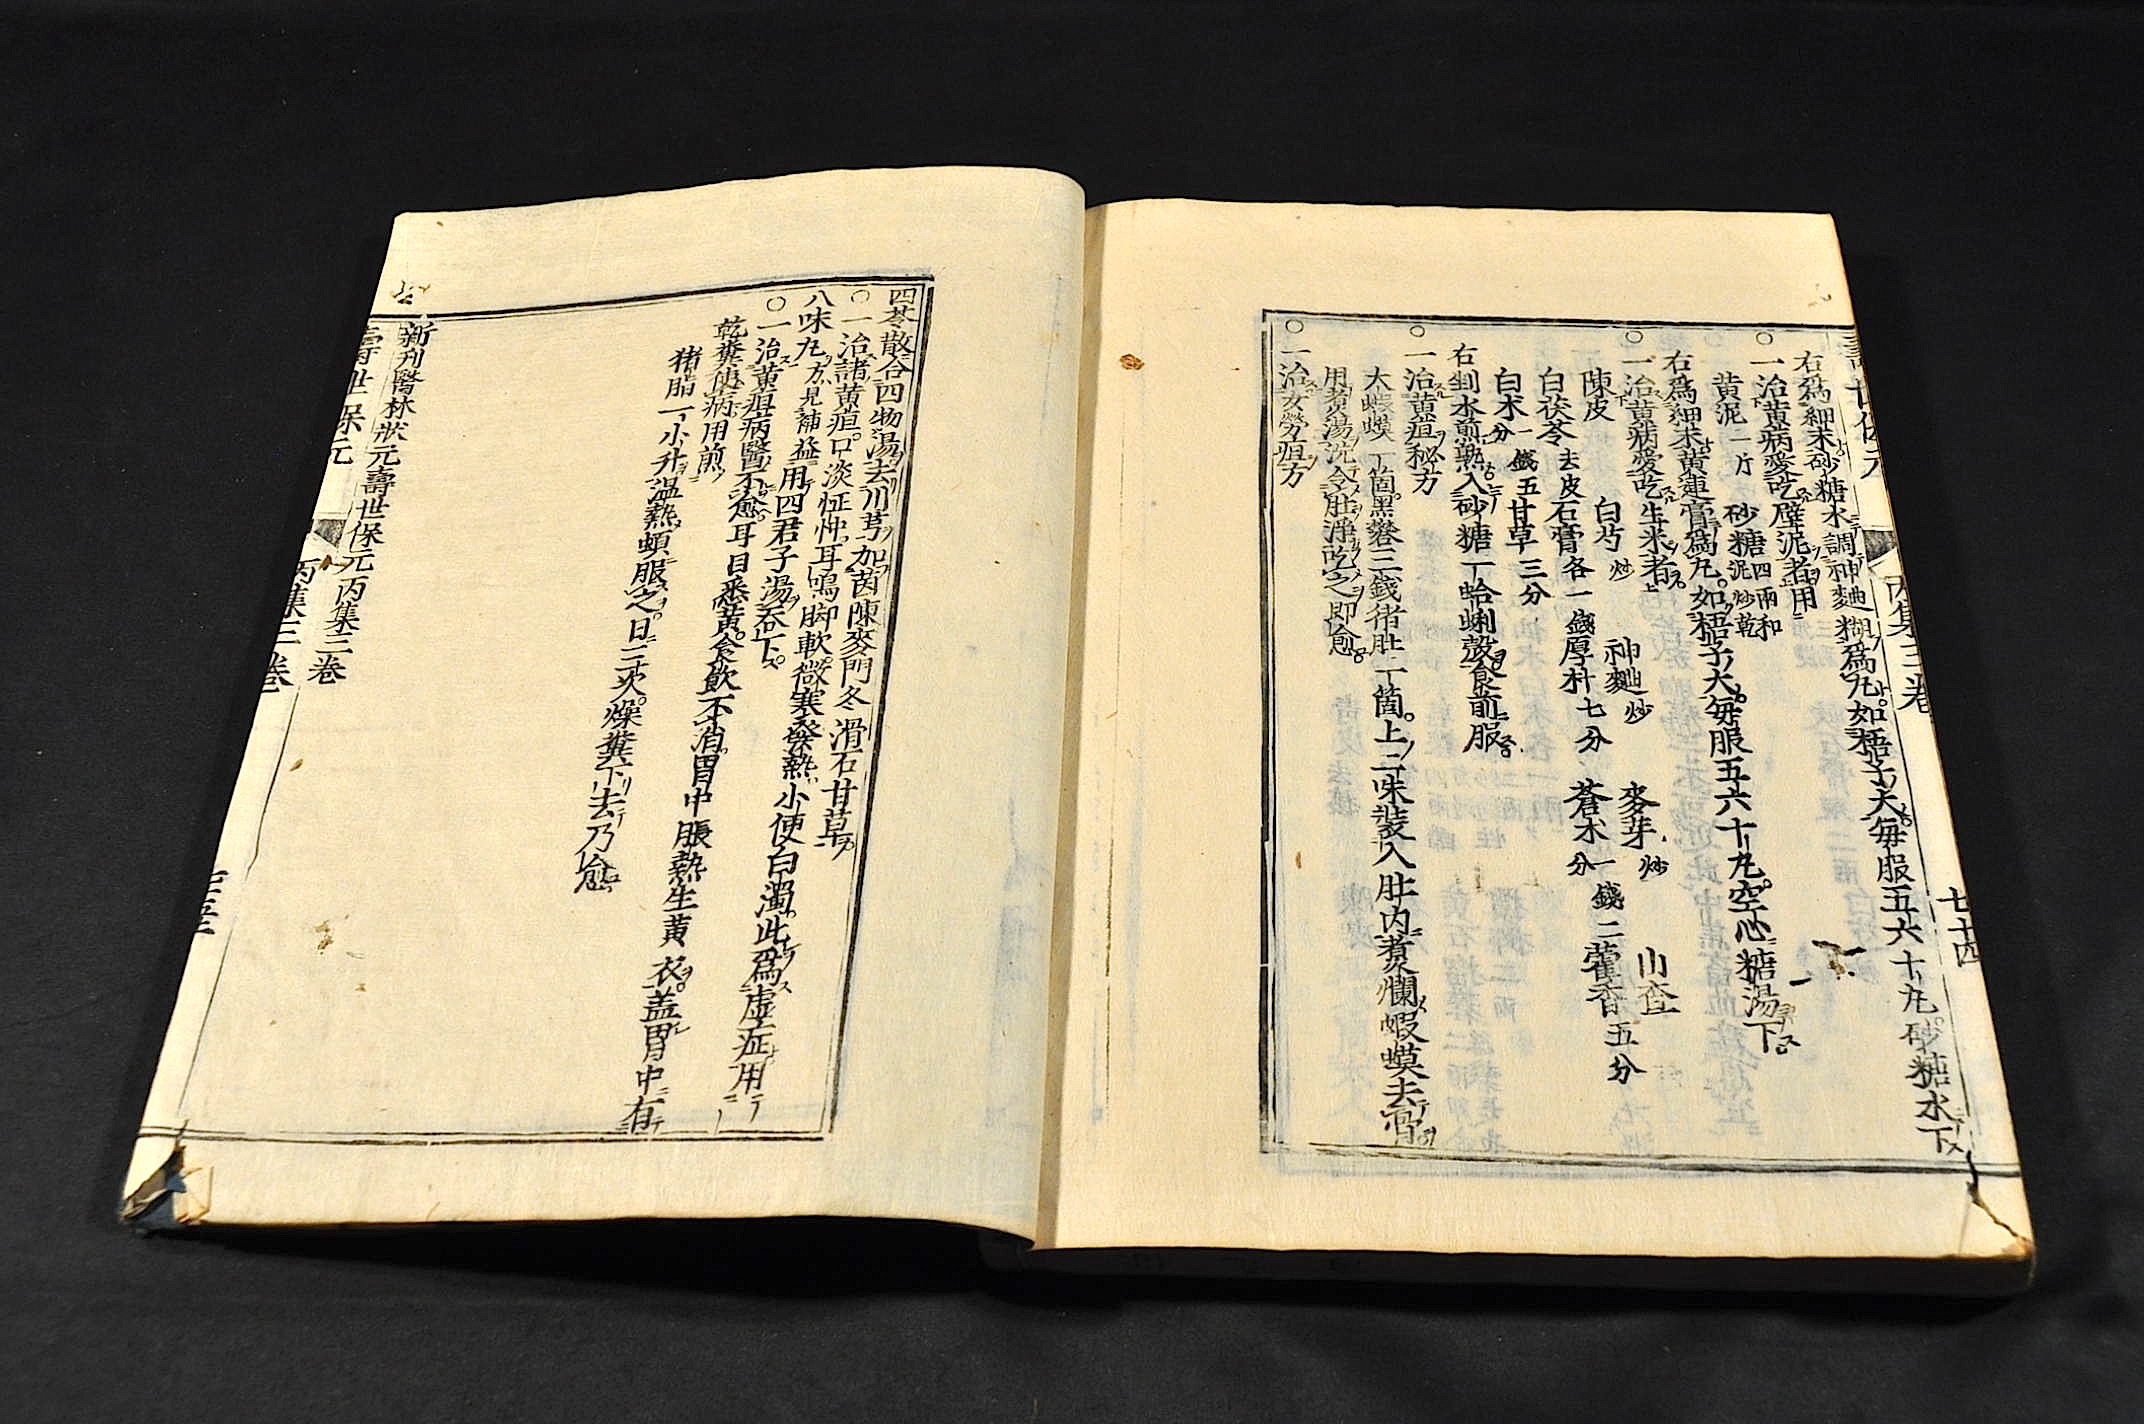 壽世保元 丙集三卷 七十四
右爲細末砂糖水調神麯糊爲丸如梧子大每服五六十丸砂糖水下
○一治黃病愛吃壁泥者用
黃泥一斤 砂糖四兩和泥炒乾
右爲細末黃連膏爲丸如梧子大每服五六十丸空心糖湯下
○一治黃病愛吃生米者
陳皮 白芍炒 神麯炒 麥芽炒 山查
白茯苓去皮石膏各一錢厚朴七分 蒼术一錢二分藿香五分
白术一錢五分甘草三分
右剉水煎熟入砂糖一蛤蜊殼食前服
○一治黃疸秘方
大蝦蟆一箇黑礬三錢猪肚一箇上二味裝入肚內煑爛蝦蟆去骨
用煑湯洗令肚淨吃之即愈
○一治女勞疸方
四苓散合四物湯去川芎加茵陳麥門冬滑石甘草
○一治諸黃疸口淡怔忡耳鳴脚軟微寒發熱小便白濁此爲虛症用
八味丸方見補益用四君子湯吞下
○一治黃疸病醫不愈耳目悉黃食飲不消胃中脹熱生黃衣蓋胃中有
乾糞使病用煎
猪脂一小升温熱頓服之日三次燥糞下去乃愈
新刋醫林狀元壽世保元丙集三卷
壽世保元 丙集三卷 七十五